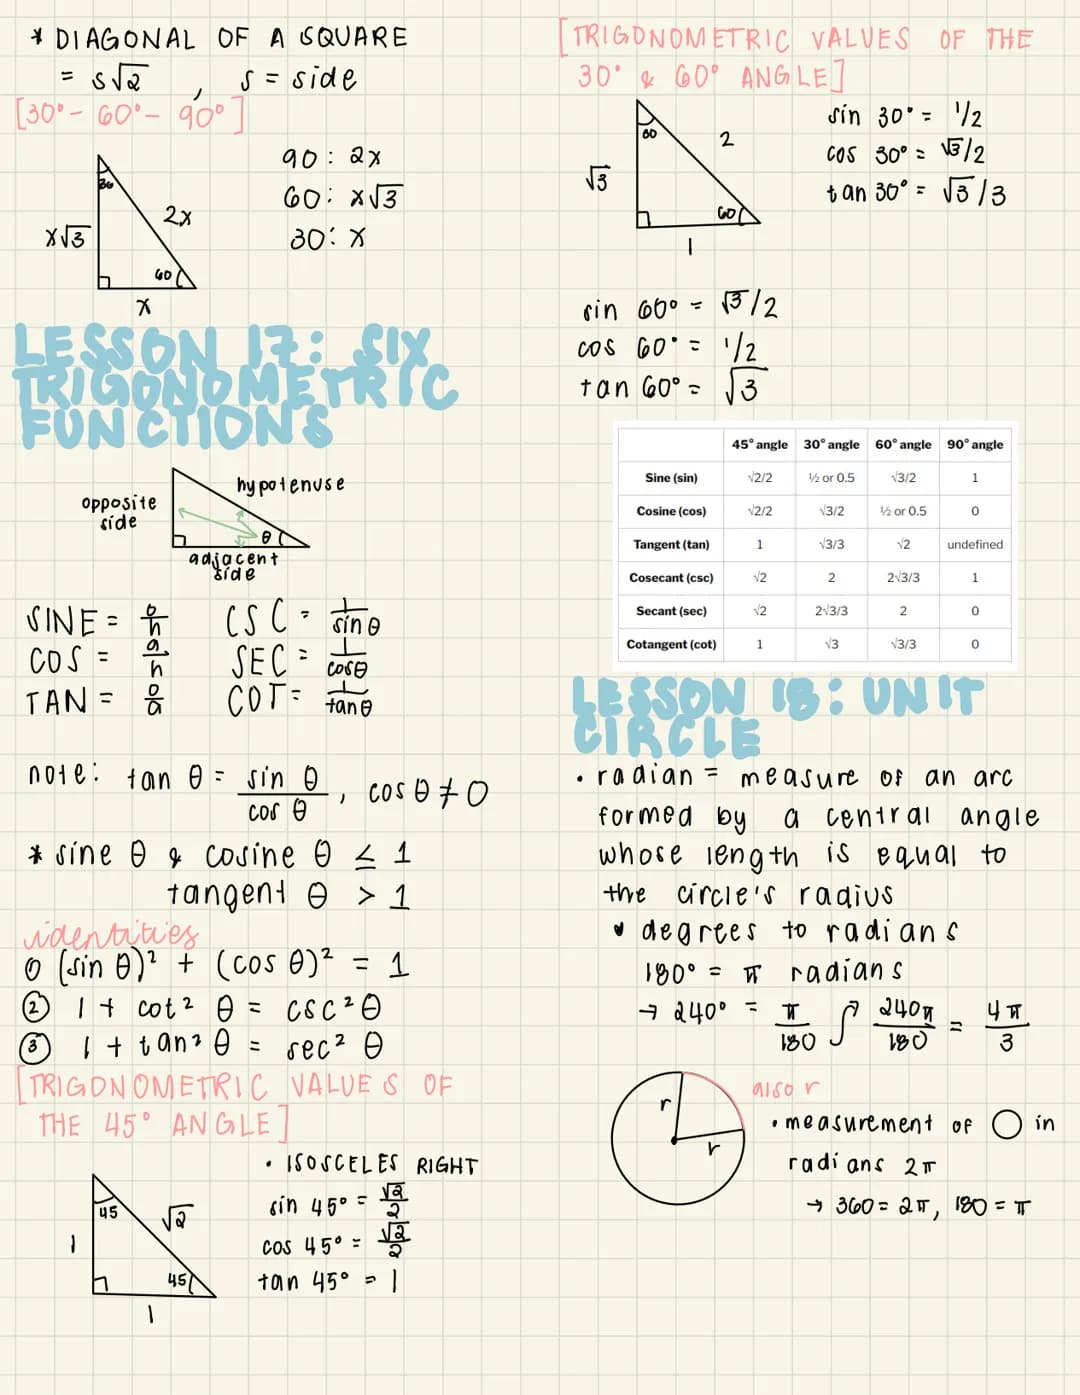 * DIAGONAL OF A SQUARE
= s√2 , s = side
[30° - 60° - 90°]
30
x√3
2x
60
x
90 : 2x
60 : x√3
30 : x
LESSON 17: SIX
TRIGONOMETRIC
FUNCTIONS
opposite
side
hypotenuse
θ
adjacent
side
SINE = o/h
COS = a/h
TAN = o/a
CSC = 1/sin θ
SEC = 1/cos θ
COT = 1/tan θ
note: tan θ = sin θ/cos θ , cos θ ≠ 0
* sine θ & cosine θ ≤ 1
tangent θ > 1
identities
① (sin θ)² + (cos θ)² = 1
② 1 + cot² θ = csc² θ
③ 1 + tan² θ = sec² θ
[TRIGONOMETRIC VALUES OF
THE 45° ANGLE]
45
√2
1
45
1
• ISOSCELES RIGHT
sin 45° = √2/2
cos 45° = √2/2
tan 45° = 1
[TRIGONOMETRIC VALUES OF THE
30° & 60° ANGLE]
2
√3
60
1
sin 30° = 1/2
cos 30° = √3/2
tan 30° = √3/3
sin 60° = √3/2
cos 60° = 1/2
tan 60° = √3
45° angle 30° angle 60° angle 90° angle
Sine (sin) √2/2 ½ or 0.5 √3/2 1
Cosine (cos) √2/2 √3/2 ½ or 0.5 0
Tangent (tan) 1 √3/3 √2 undefined
Cosecant (csc) √2 2 2√3/3 1
Secant (sec) √2 2√3/3 2 0
Cotangent (cot) 1 √3 √3/3 0
LESSON 18: UNIT
CIRCLE
• radian = measure of an arc
formed by a central angle
whose length is equal to
the circle's radius
degrees to radians
180° = π radians
→ 240° = π/180 240π/180 = 4π/3
r
r
also r
• measurement of ◯ in
radians 2π
→ 360 = 2π, 180 = π